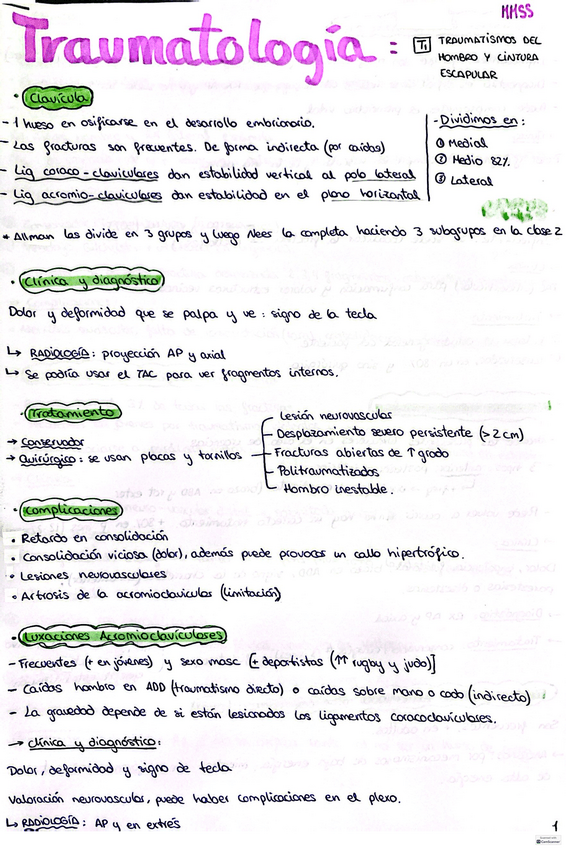 MMSS
Traumatología:
T1 TRAUMATISMOS DEL
HOMBRO Y CINTURA
ESCAPULAR
• Clavícula
- 1 hueso en osificarse en el desarrollo embrionario.
- Las fracturas son frecuentes. De forma indirecta (por caídas)
- Lig coraco-claviculares dan estabilidad vertical al polo lateral
- Lig acromio-claviculares dan estabilidad en el plano horizontal
- Dividimos en:
① Medial
② Medio 82%
③ Lateral
* Allman las divide en 3 grupos y luego Neer la completa haciendo 3 subgrupos en la clase 2
• Clínica y diagnóstico
Dolor y deformidad que se palpa y ve: signo de la tecla
↳ RADIOLOGÍA: proyección AP y axial
↳ Se podría usar el TAC para ver fragmentos internos.
• Tratamiento
→ Conservador
→ Quirúrgico: se usan placas y tornillos
- Lesión neurovasculares
- Desplazamiento severo persistente (>2cm)
- Fracturas abiertas de ↑ grado
- Politraumatizados
- Hombro inestable.
• Complicaciones
• Retardo en consolidación
• Consolidación viciosa (dolor), además puede provocar un callo hipertrófico.
• Lesiones neurovasculares
• Artrosis de la acromioclavicular (limitación)
• Luxaciones Acromioclaviculares
- Frecuentes (+ en jóvenes) y sexo masc [+ deportistas (↑↑ rugby y judo)]
- Caídas hombro en ADD (traumatismo directo) o caídas sobre mano o codo (indirecto)
- La gravedad depende de si están lesionados los ligamentos coracoclaviculares.
→ Clínica y diagnóstico:
Dolor, deformidad y signo de tecla.
Valoración neurovascular, puede haber complicaciones en el plexo.
↳ RADIOLOGÍA: AP y en estrés
1
CamScanner